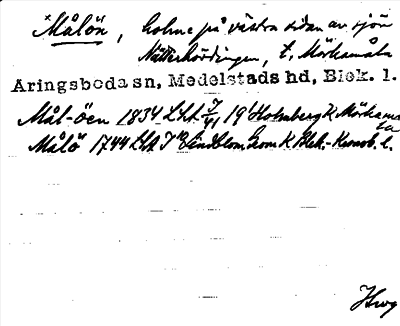 *Målön, holme på västra sidan av sjön
Nätterhövdingen, t. Mörkamåla
Aringsboda sn, Medelstads hd, Blek. l.
Mål-öen 1834 LSA 19 Holmberg K Mörkama
la
Målö 1744 LSA Lindblom Grom K Blek.-Kronob. l.
Hwg